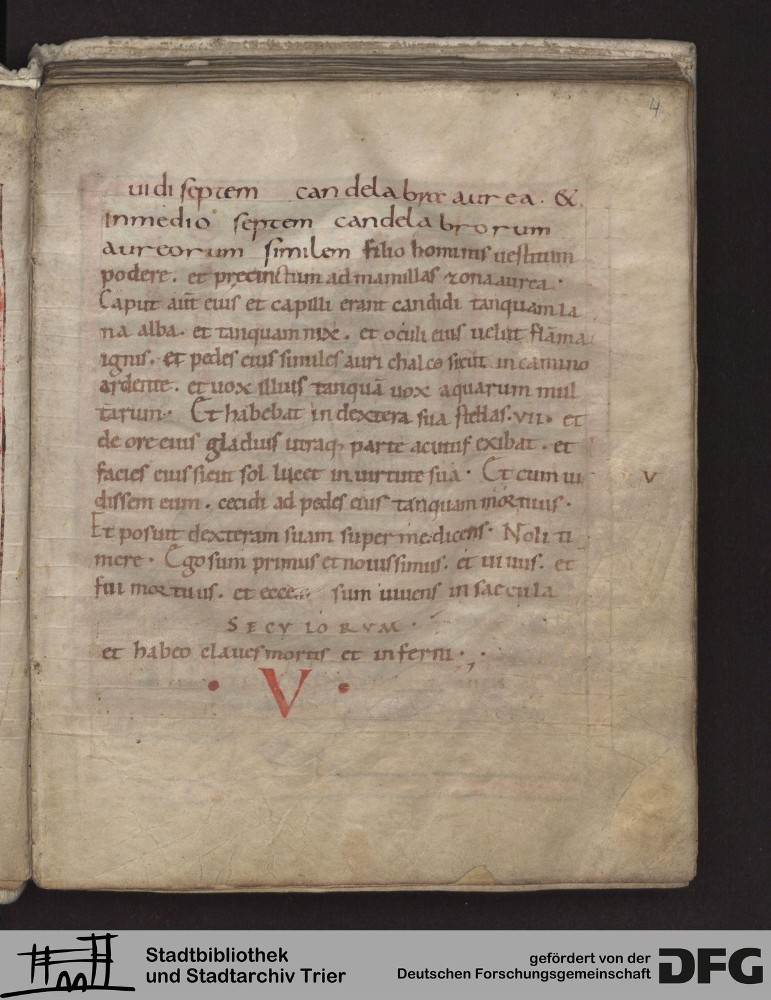 4
uidi septem candelabra aurea. &
inmedio septem candelabrorum
aureorum similem filio hominis uestitum
podere. et precinctum ad mamillas zona aurea.
Caput aut̄ eius et capilli erant candidi tanquam la
na alba. et tanquam nix. et oculi eius uelut flāma
ignis. et pedes eius similes auri chalco sicut in camino
ardente. et uox illius tanquā uox aquarum mul
tarum. Et habebat in dextera sua stellas .vii. et
de ore eius gladius utraq; parte acutus exibat. et
facies eius sicut sol lucet in uirtute sua. Et cum ui
V
dissem eum. cecidi ad pedes eius tanquam mortuus.
Et posuit dexteram suam super me dicens. Noli ti
mere. Ego sum primus et nouissimus. et uiuus. et
fui mortuus. et ecce sum uiuens in saecula
SECVLORVM.
et habeo claues mortis et inferni.
· V ·
Stadtbibliothek
und Stadtarchiv Trier
gefördert von der
Deutschen Forschungsgemeinschaft
DFG